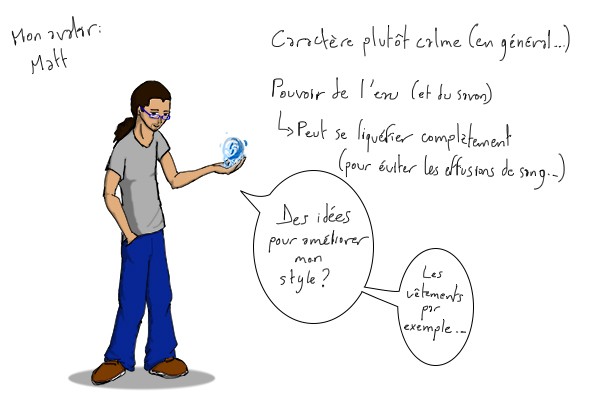 Mon avatar:
Matt
Caractère plutôt calme (en général...)
Pouvoir de l'eau (et du savon)
Peut se liquéfier complètement
(pour éviter les effusions de sang...)
Des idées
pour améliorer
mon
style?
Les
vêtements
par
exemple...